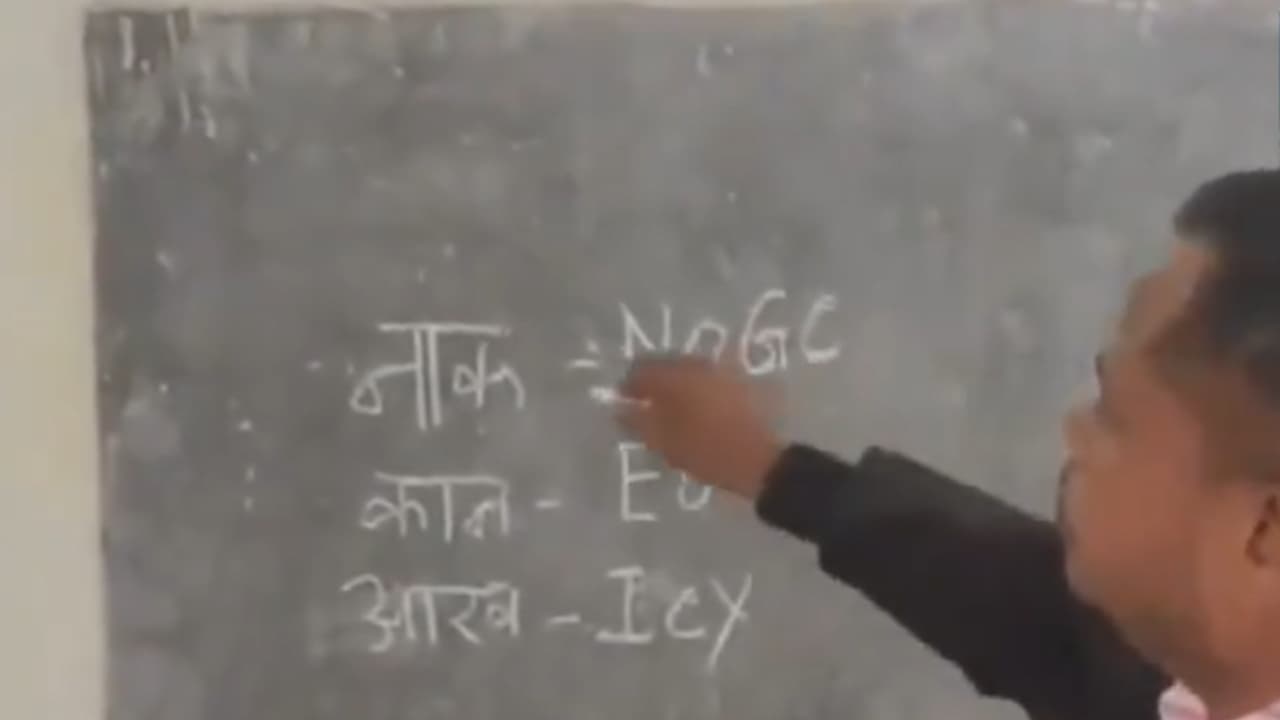 नाक = NoGC
कान -
आख - Icy